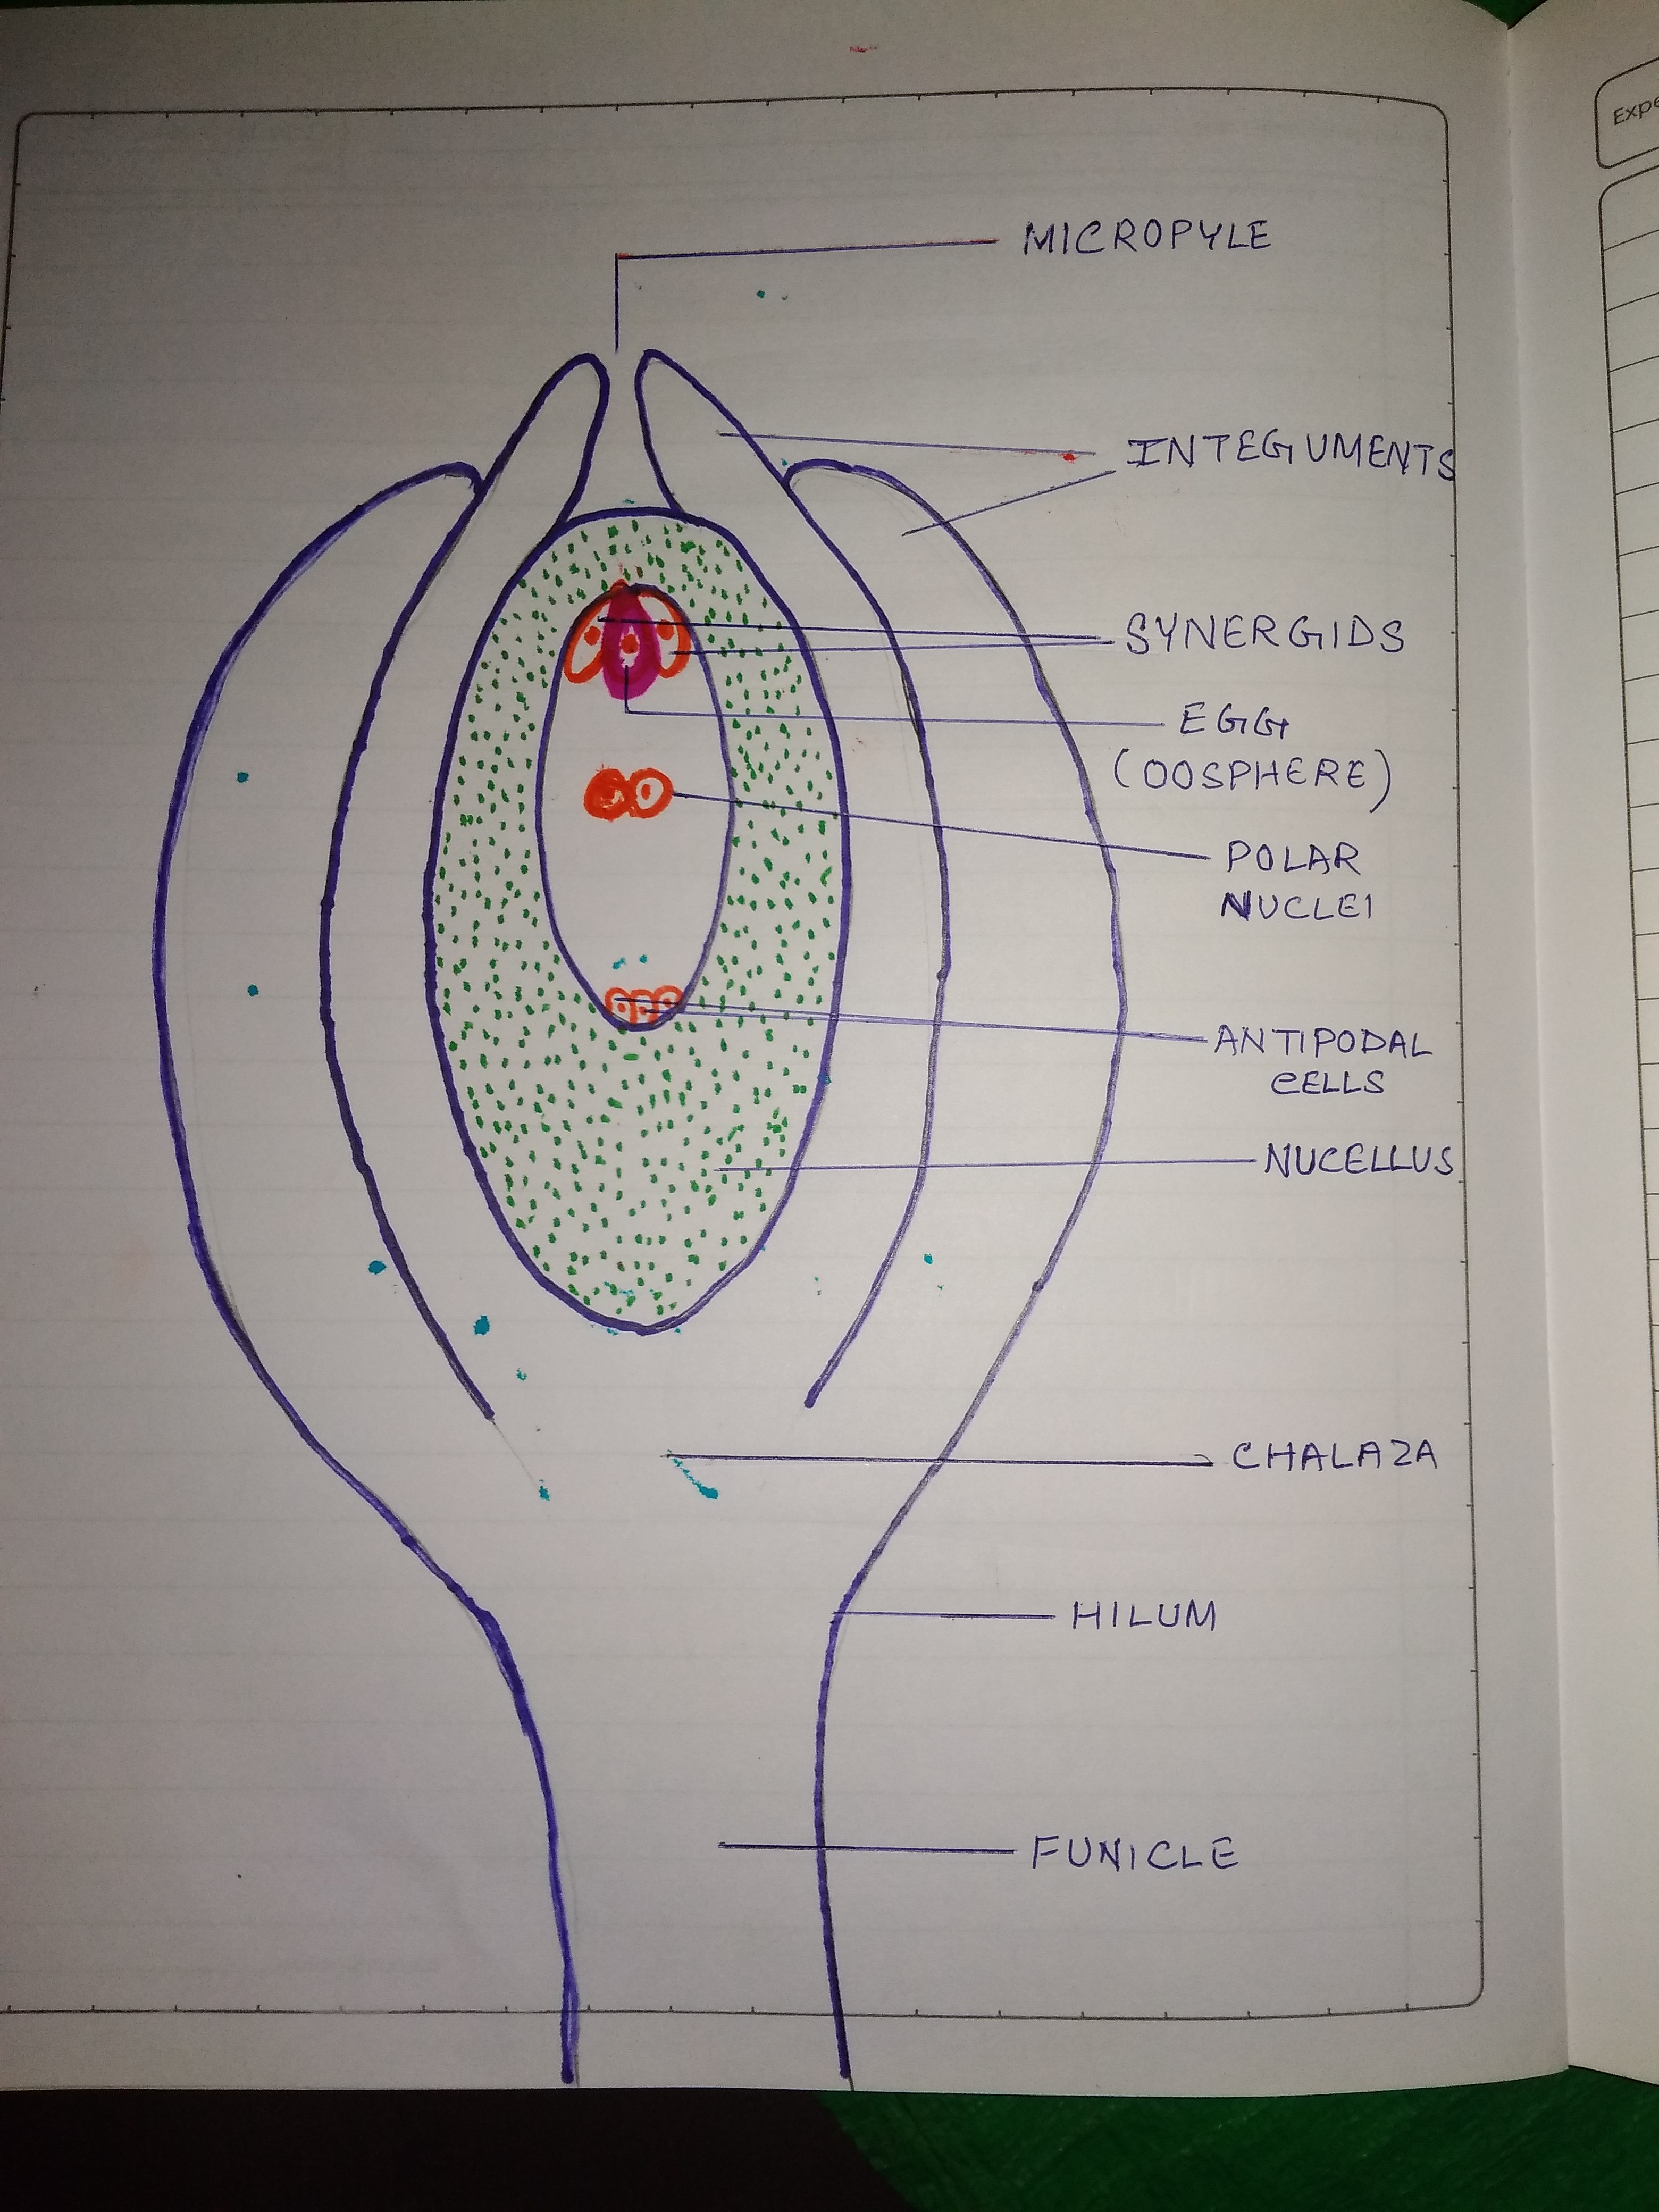 MICROPYLE
INTEGUMENTS
SYNERGIDS
EGG
(OOSPHERE)
POLAR
NUCLEI
ANTIPODAL
CELLS
NUCELLUS
CHALAZA
HILUM
FUNICLE